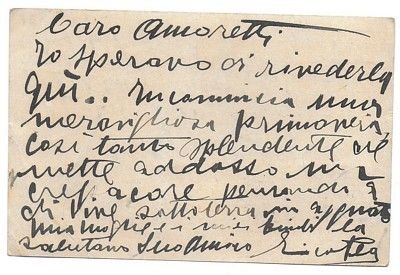 Caro Amoretti
Io speravo di rivederla
quì.. Ricomincia una
meravigliosa primavera,
così tanto splendente che
mette addosso un
crepacuore pensando a
chi vive sottoterra in
mia moglie e i miei bimbi la
salutano Suo Amico